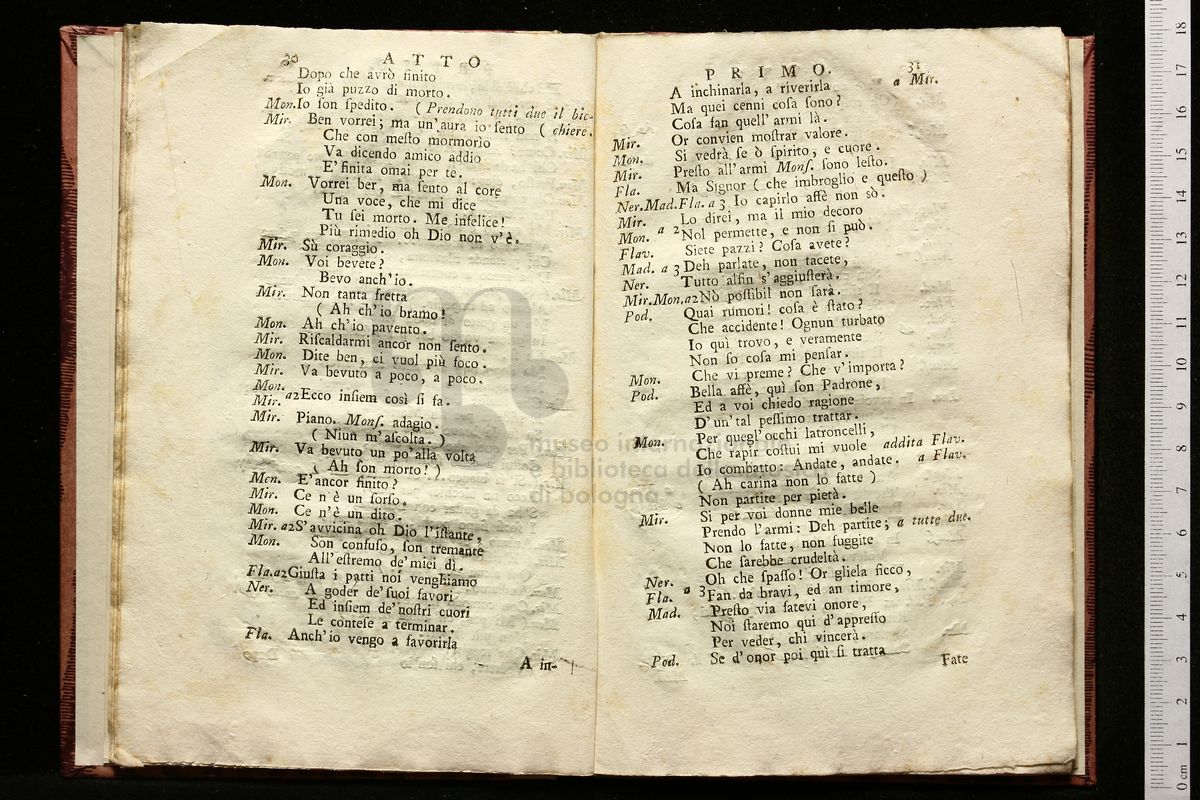 30 ATTO
Dopo che avrò finito
Io già puzzo di morto.
Mon. Io ſon ſpedito. ( Prendono tutti due il bic-
Mir. Ben vorrei; ma un'aura io ſento ( chiere.
Che con meſto mormorio
Va dicendo amico addio
E' finita omai per te.
Mon. Vorrei ber, ma ſento al core
Una voce, che mi dice
Tu ſei morto. Me infelice!
Più rimedio oh Dio non v'è.
Mir. Sù coraggio.
Mon. Voi bevete?
Bevo anch'io.
Mir. Non tanta fretta
( Ah ch'io bramo!
Mon. Ah ch'io pavento.
Mir. Riſcaldarmi ancor non ſento.
Mon. Dite ben, ci vuol più foco.
Mir. Va bevuto a poco, a poco.
Mon.
Mir. a2 Ecco inſiem così ſi fa.
Mir. Piano. Monſ. adagio.
( Niun m'aſcolta. )
Mir. Va bevuto un po'alla volta
( Ah ſon morto! )
Mon. E'ancor finito?
Mir. Ce n'è un ſorſo.
Mon. Ce n'è un dito.
Mir. a2 S'avvicina oh Dio l'iſtante,
Mon. Son confuſo, ſon tremante
All'eſtremo de'miei dì.
Fla. a2 Giuſta i patti noi venghiamo
Ner. A goder de'ſuoi favori
Ed inſiem de'noſtri cuori
Le conteſe a terminar.
Fla. Anch'io vengo a favorirla
A in-
PRIMO. 31
A inchinarla, a riverirla a Mir.
Ma quei cenni coſa ſono?
Coſa fan quell'armi là.
Mir. Or convien moſtrar valore.
Mon. Si vedrà ſe ò ſpirito, e cuore.
Mir. Preſto all'armi Monſ. ſono leſto.
Fla. Ma Signor ( che imbroglio e queſto )
Ner. Mad. Fla. a 3 Io capirlo affè non sò.
Mir. Lo direi, ma il mio decoro
Mon. a 2 Nol permette, e non ſi può.
Flav. Siete pazzi? Coſa avete?
Mad. a 3 Deh parlate, non tacete,
Ner. Tutto alfin s'aggiuſterà.
Mir. Mon. a2 Nò poſſibil non ſarà.
Pod. Quai rumori! coſa è ſtato?
Che accidente! Ognun turbato
Io quì trovo, e veramente
Non ſo coſa mi penſar.
Mon. Che vi preme? Che v'importa?
Pod. Bella affè, quì ſon Padrone,
Ed a voi chiedo ragione
D'un'tal peſſimo trattar.
Mon. Per quegl'occhi latroncelli,
Che rapir coſtui mi vuole addita Flav.
Io combatto: Andate, andate. a Flav.
( Ah carina non lo fatte )
Non partite per pietà.
Mir. Si per voi donne mie belle
Prendo l'armi: Deh partite; a tutte due.
Non lo fatte, non fuggite
Che ſarebbe crudeltà.
Ner. Oh che ſpaſſo! Or gliela ficco,
Fla. a 3 Fan da bravi, ed an timore,
Mad. Preſto via fatevi onore,
Noi ſtaremo qui d'appreſſo
Per veder, chi vincerà.
Pod. Se d'onor poi quì ſi tratta
Fate